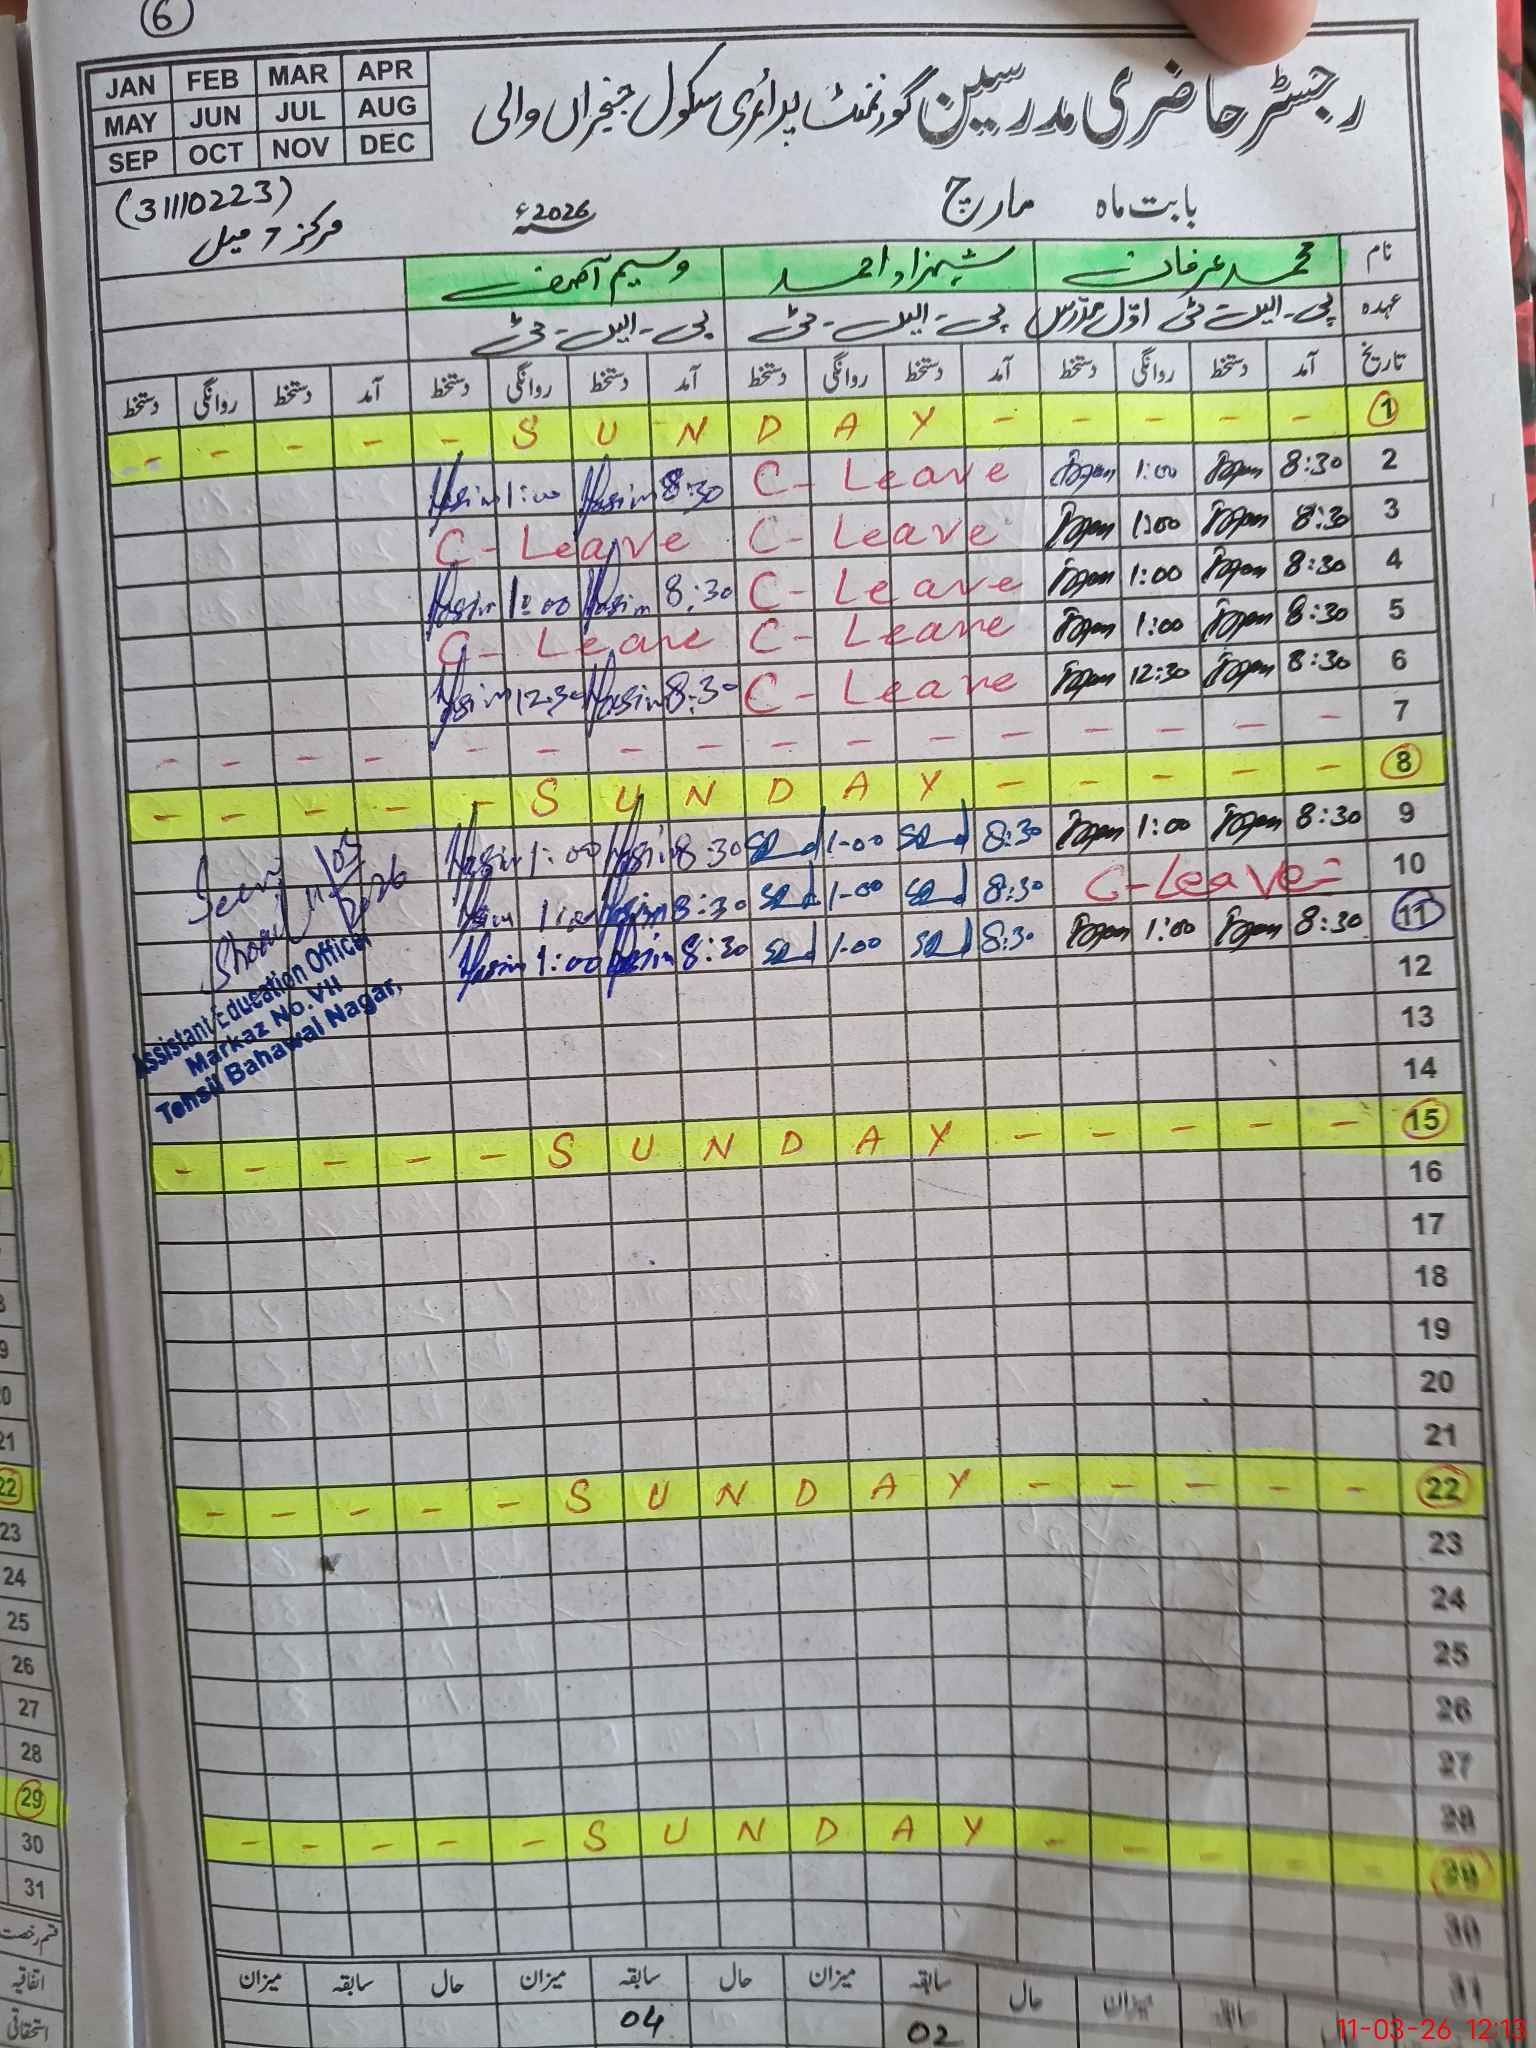 6
JAN FEB MAR APR
MAY JUN JUL AUG
SEP OCT NOV DEC
رجسٹر حاضری مدرسین گورنمنٹ پرائمری سکول
(31110223)
مرکز 7 میل
بابت ماہ مارچ 2026ء
نام محمد عرفان شہزاد احمد وسیم آصف
عہدہ پی۔ایس۔ٹی اوّل مدرس پی۔ایس۔ٹی پی۔ایس۔ٹی
تاریخ آمد دستخط روانگی دستخط آمد دستخط روانگی دستخط آمد دستخط روانگی دستخط آمد دستخط روانگی دستخط
- - - - - S U N D A Y - - - - - 1
Wasim 1:00 Wasim 8:30 C - Leave 1:00 8:30 2
C - Leave C - Leave 1:00 8:30 3
Wasim 1:00 Wasim 8:30 C - Leave 1:00 8:30 4
C - Leave C - Leave 1:00 8:30 5
Wasim 12:30 Wasim 8:30 C - Leave 12:30 8:30 6
- - - - - - - - - - - - - - - - 7
- - - - - S U N D A Y - - - - - 8
Wasim 1:00 Wasim 8:30 1-00 8:30 1:00 8:30 9
Wasim 1:00 Wasim 8:30 1-00 8:30 C-Leave- 10
Wasim 1:00 Wasim 8:30 1-00 8:30 1:00 8:30 11
Seen
Assistant Education Officer
Markaz No. VII
Tehsil Bahawal Nagar,
12
13
14
- - - - - S U N D A Y - - - - - 15
16
17
18
19
20
21
- - - - - S U N D A Y - - - - - 22
23
24
25
26
27
28
- - - - - S U N D A Y - - - - - 29
30
31
حال میزان سابقہ حال میزان سابقہ حال میزان
02 04
21
22
23
24
25
26
27
28
29
30
31
قسم رخصت
اتفاقیہ
استحقاقی
11-03-26 12:13